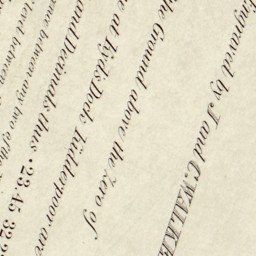 l between
ence between any two of the
and Decimals thus • 23.45 32.2
e at Kyd's Dock Kidderpoor are
the Ground above the Zero of
Engraved by J. and C. WALKE